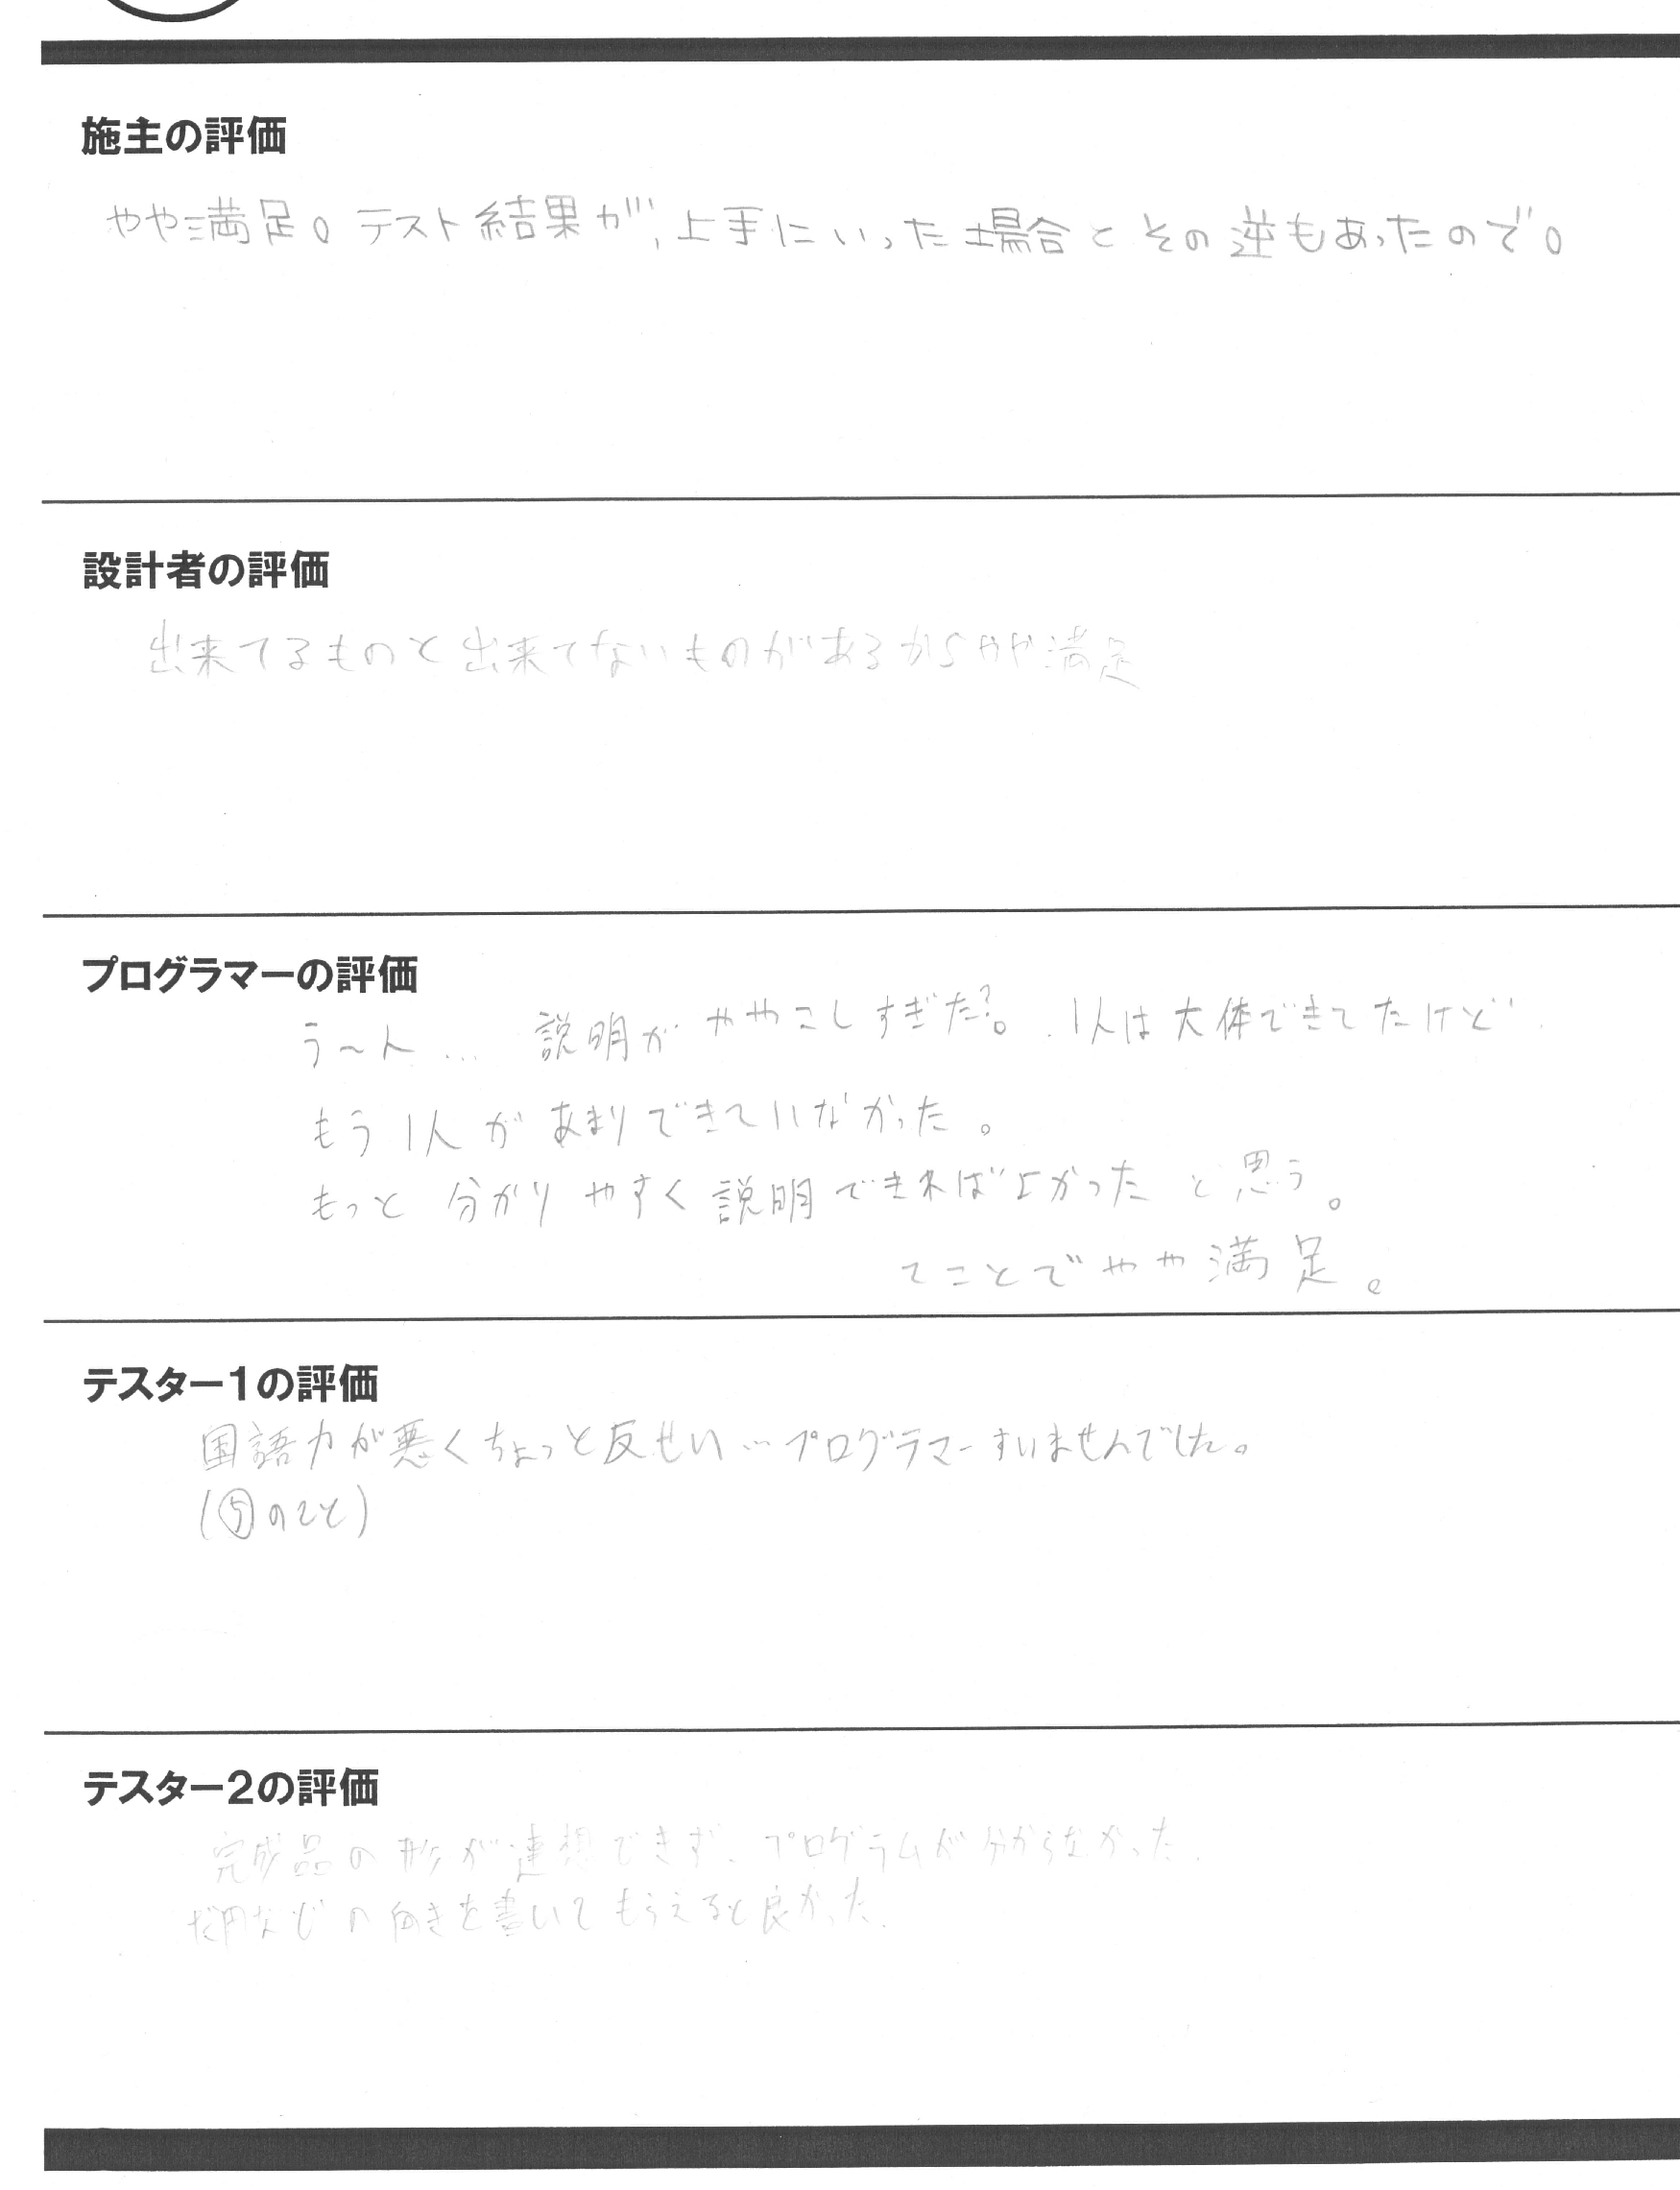 施主の評価
やや満足。テスト結果が、上手にいった場合とその逆もあったので。
設計者の評価
出来てるものと出来てないものがあるからやや満足
プログラマーの評価
う～ん… 説明がややこしすぎた?。1人は大体できてたけど
もう1人があまりできていなかった。
もっと分かりやすく説明できればよかったと思う。
てことでやや満足。
テスター1の評価
国語力が悪くちょっと反せい…プログラマーすいませんでした。
(⑤のこと)
テスター2の評価
完成品の形が連想できず、プログラムが分からなかった.
だ円などの向きを書いてもらえると良かった.